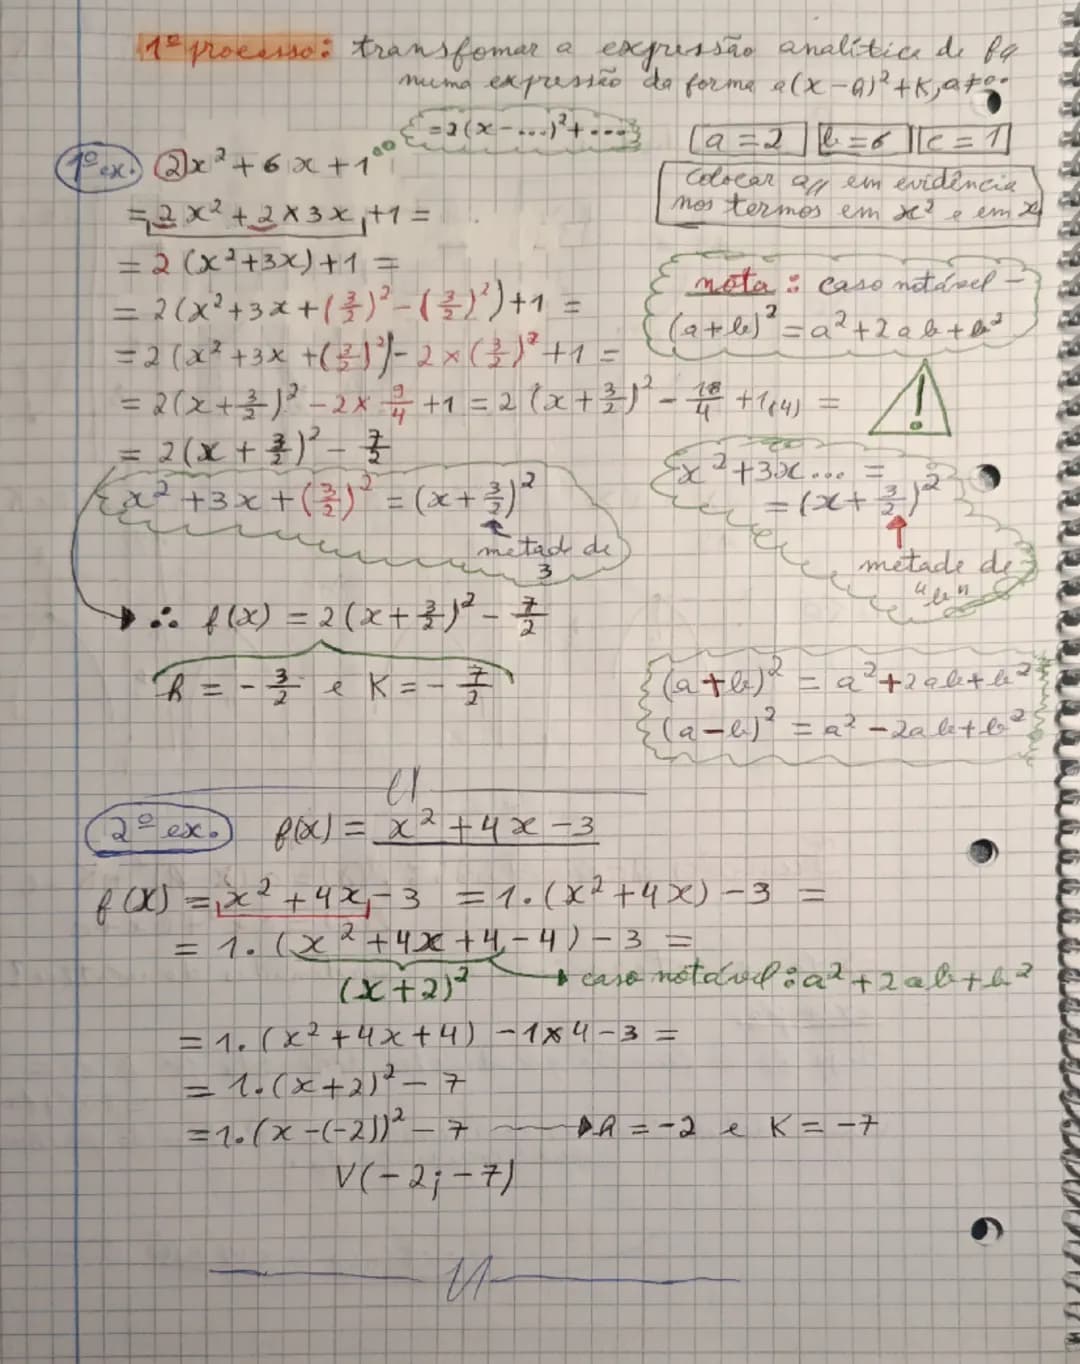 1º processo: transfomar a expressão analítica de fq
numa expressão da forma a(x-h)²+K, a≠0.
=2(x-...)²+...
a=2 b=6 c=1
1º ex. 2x²+6x+1
colocar a,, em evidência
nos termos em x² e em x
=2x²+2×3x+1=
=2(x²+3x)+1=
nota: caso notável -
(a+b)²=a²+2ab+b²
=2(x²+3x+(3/2)²-(3/2)²)+1=
=2(x²+3x+(3/2)²)-2×(3/2)²+1=
=2(x+3/2)²-2×9/4+1=2(x+3/2)²-18/4+1(4)=
!
=2(x+3/2)²-7/2
x²+3x+(3/2)²=(x+3/2)²
metade de
3
x²+3x...=
=(x+3/2)²
metade de
"b"
∴ f(x)=2(x+3/2)²-7/2
h=-3/2 e K=-7/2
(a+b)²=a²+2ab+b²
(a-b)²=a²-2ab+b²
2º ex. f(x)=x²+4x-3
f(x)=x²+4x-3 =1.(x²+4x)-3=
=1.(x²+4x+4-4)-3=
(x+2)² → caso notável: a²+2ab+b²
=1.(x²+4x+4)-1×4-3=
=1.(x+2)²-7
=1.(x-(-2))²-7 → h=-2 e K=-7
V(-2;-7)